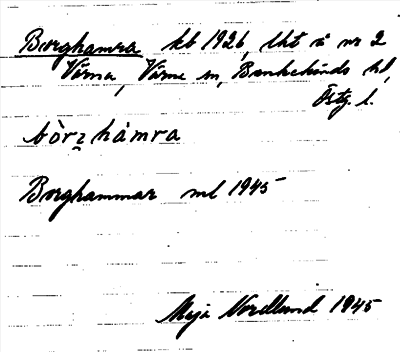 Borghamra kb 1926, lht å nr 2
Värna, Värna sn, Bankekinds hd,
Östg. l.
bòrʒhámra
Borghammar ml 1945
Maja Nordlund 1945